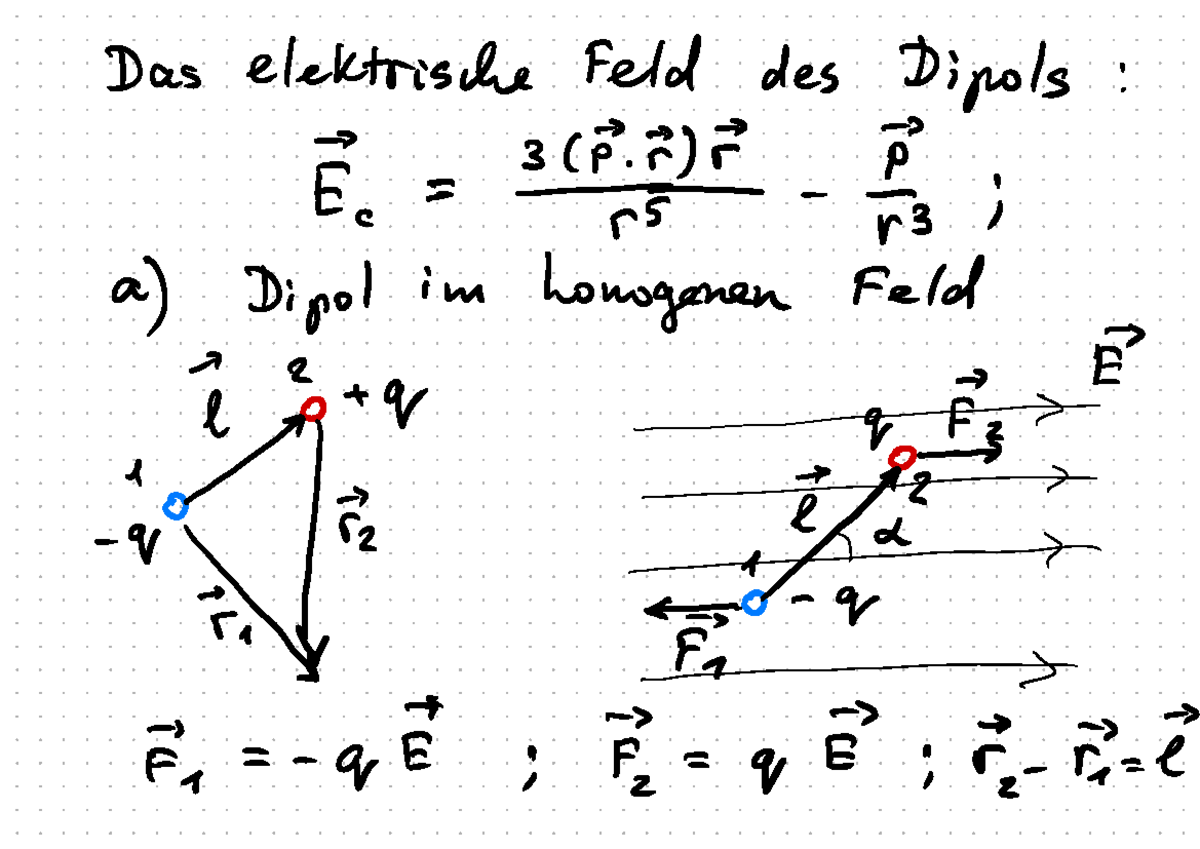 Das elektrische Feld des Dipols :
E⃗_c = 3(p⃗·r⃗)r⃗ / r⁵ - p⃗ / r³ ;
a) Dipol im homogenen Feld
l⃗ 2 + q
1 - q
r⃗₁ r⃗₂
E⃗
q F⃗₂
l⃗ 2
α
1 - q
F⃗₁
F⃗₁ = - q E⃗ ; F⃗₂ = q E⃗ ; r⃗₂ - r⃗₁ = l⃗